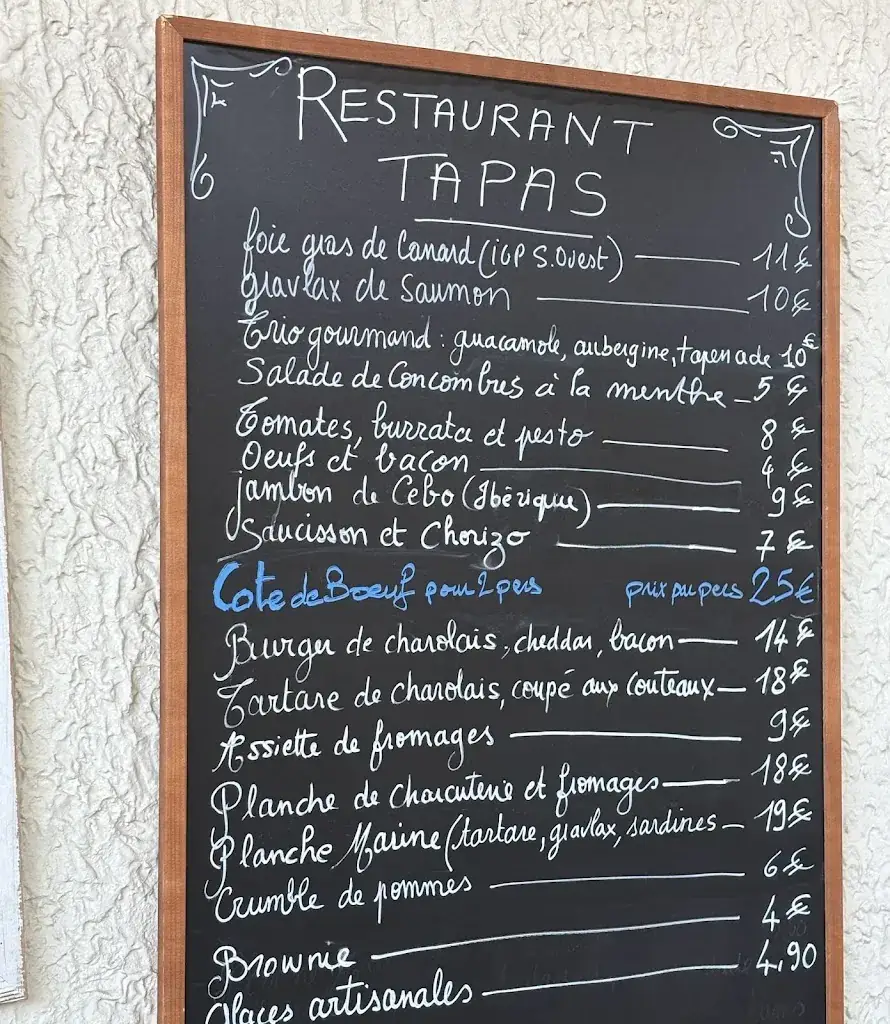 RESTAURANT
TAPAS
foie gras de Canard (IGP S.Ouest) 11€
gravlax de Saumon 10€
Trio gourmand : guacamole, aubergine, tapenade 10€
Salade de Concombres à la menthe 5 €
Tomates, burrata et pesto 8 €
Oeufs et bacon 4 €
jambon de Cebo (Ibérique) 9 €
Saucisson et Chorizo 7 €
Cote de Boeuf pour 2 pers prix par pers 25€
Burger de charolais, cheddar, bacon 14€
Tartare de charolais, coupé aux couteaux 18€
Assiette de fromages 9€
Planche de charcuterie et fromages 18€
Planche Marine (tartare, gravlax, sardines 19€
Crumble de pommes 6€
Brownie 4€
Glaces artisanales 4,90